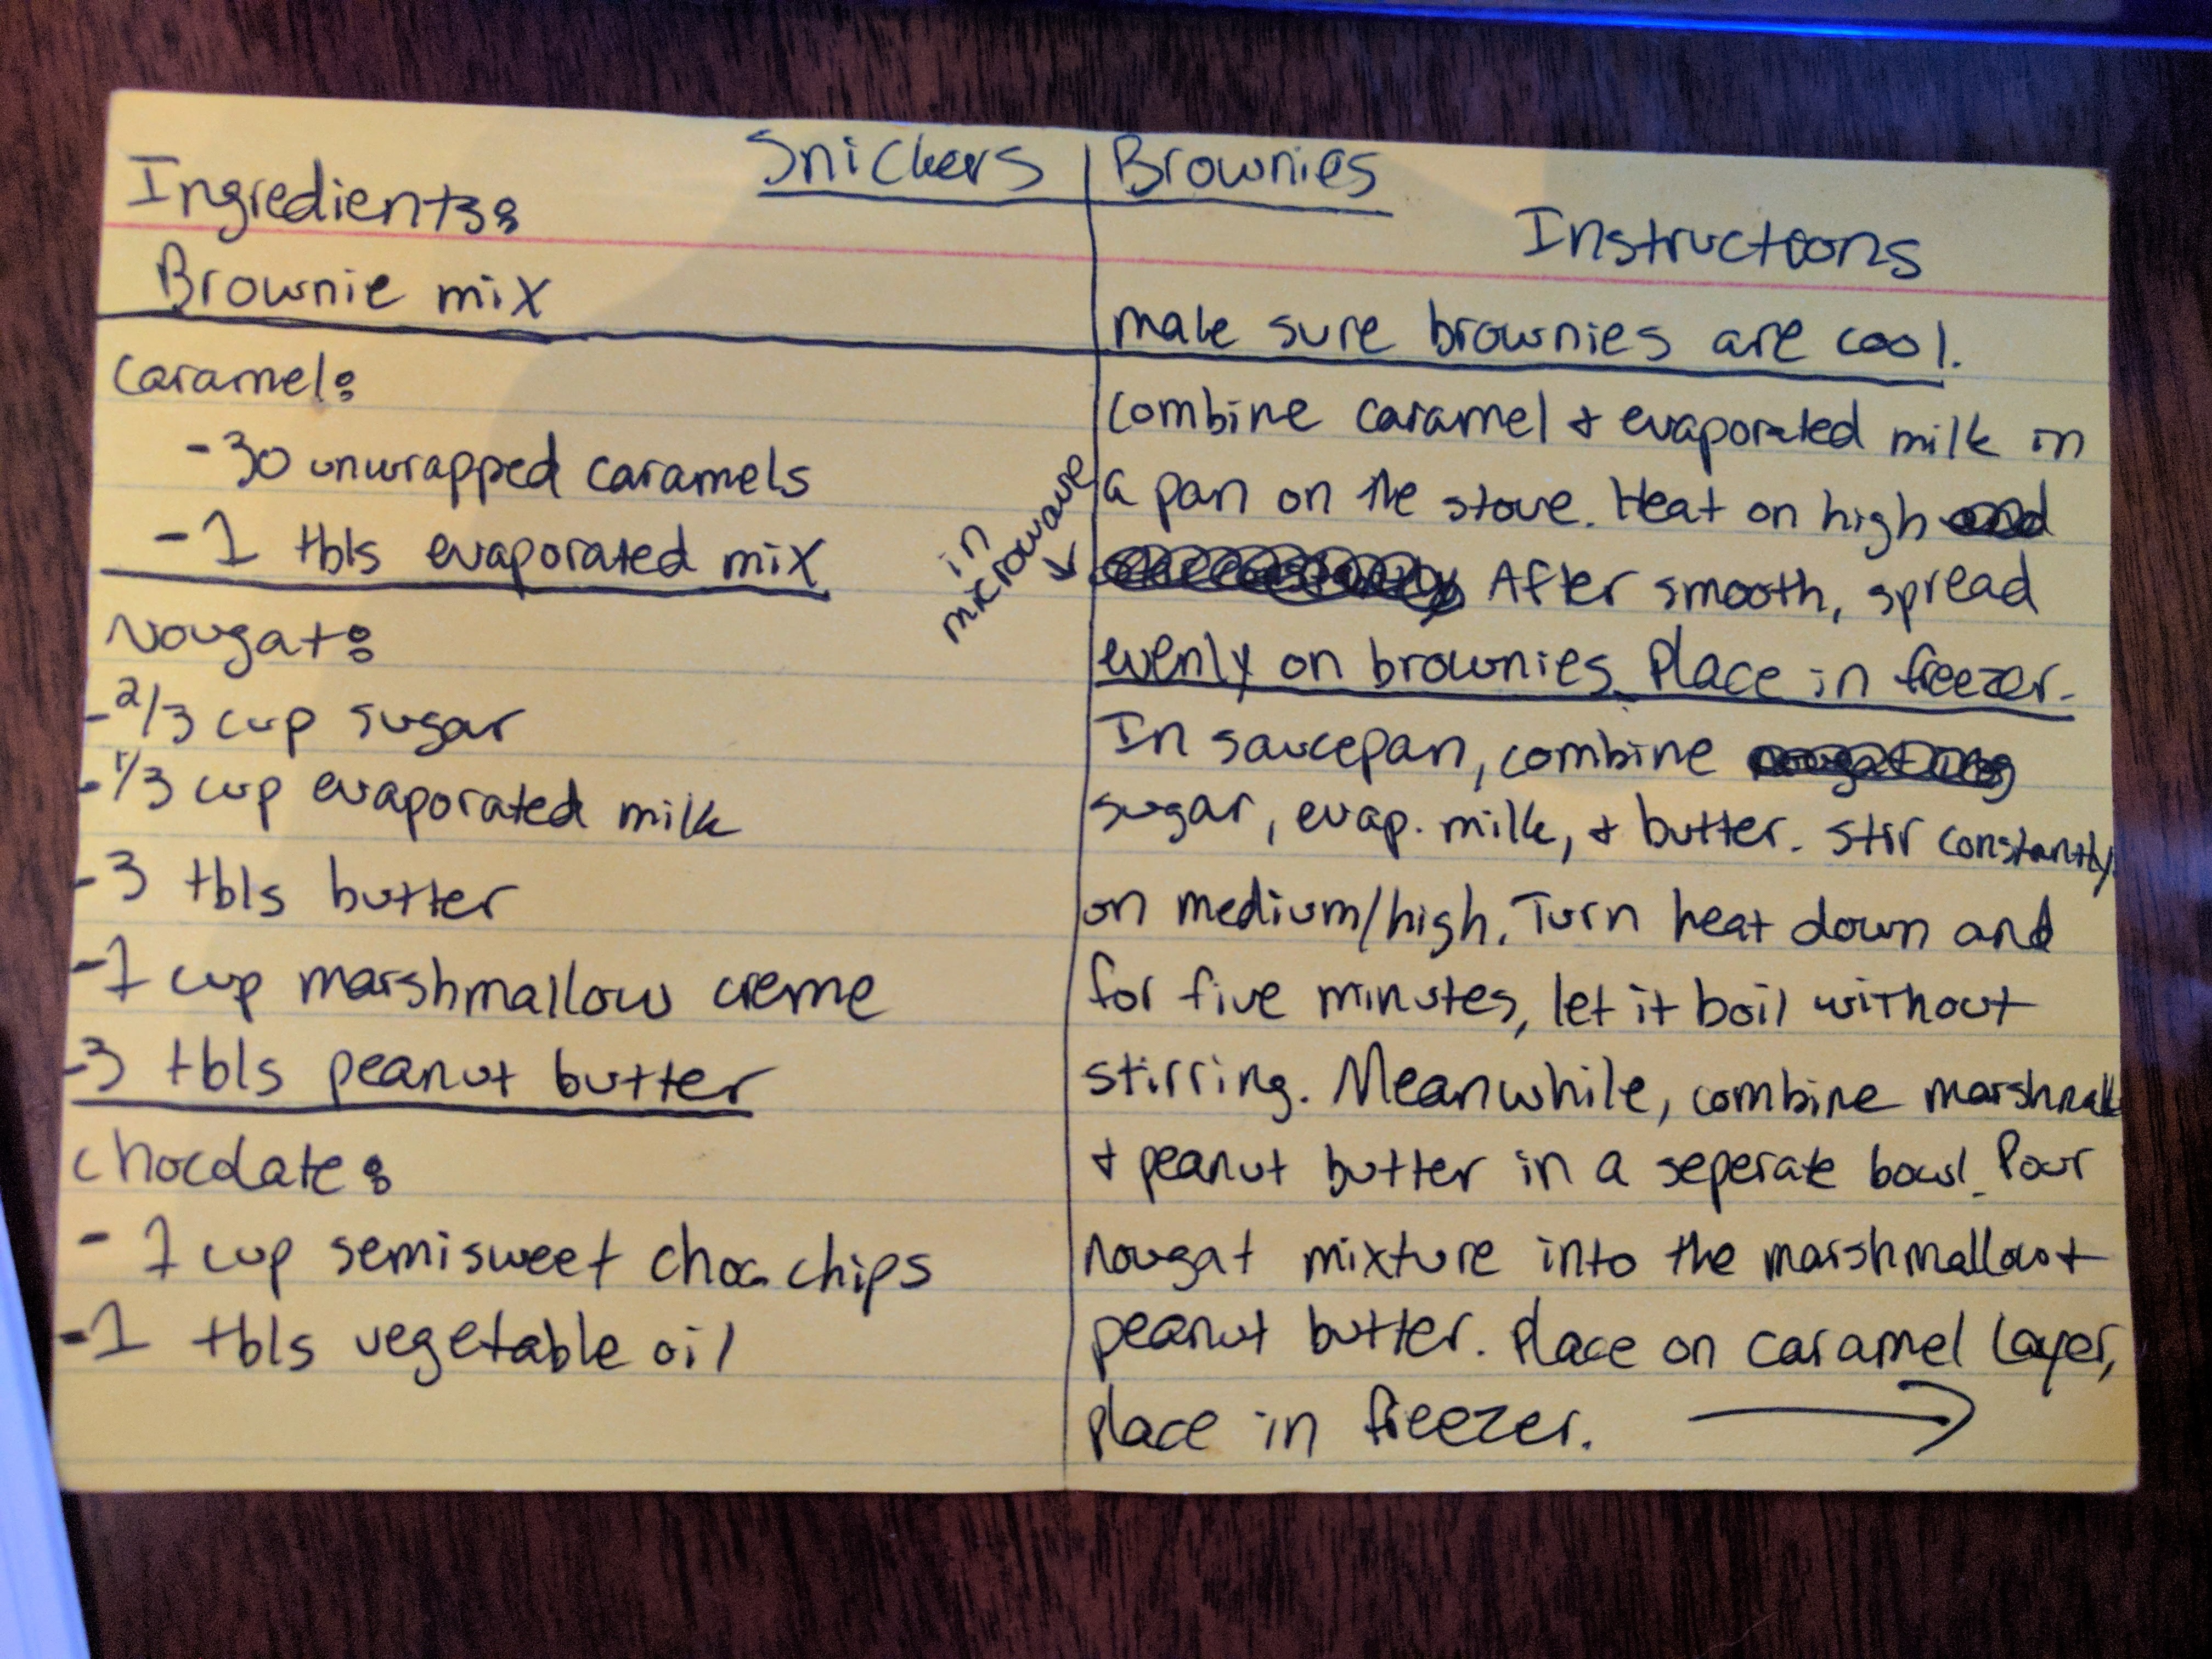 Snickers Brownies
Ingredients:
Brownie mix
Caramel:
-30 unwrapped caramels
-1 tbls evaporated mix
Nougat:
-2/3 cup sugar
-1/3 cup evaporated milk
-3 tbls butter
-1 cup marshmallow creme
-3 tbls peanut butter
Chocolate:
-1 cup semisweet choc. chips
-1 tbls vegetable oil
Instructions
make sure brownies are cool.
Combine caramel & evaporated milk in
a pan on the stove. Heat on high
in
microwave
After smooth, spread
evenly on brownies. Place in freezer.
In saucepan, combine
sugar, evap. milk, & butter. Stir constantly
on medium/high. Turn heat down and
for five minutes, let it boil without
stirring. Meanwhile, combine marshmall
& peanut butter in a seperate bowl. Pour
nougat mixture into the marshmallow &
peanut butter. Place on caramel layer,
place in freezer.